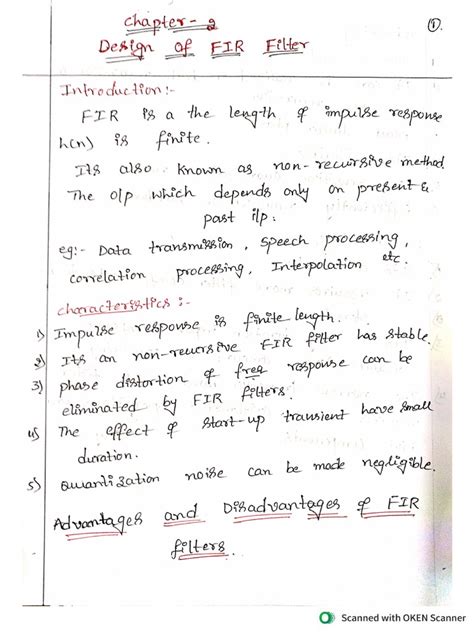 Chapter - 2
①.
Design of FIR Filter
Introduction :-
FIR is a the length of impulse response
h(n) is finite.
Its also known as non-recursive method.
The o/p which depends only on present &
past i/p.
eg:- Data transmission, speech processing,
correlation processing, Interpolation etc.
characteristics :-
1) Impulse response is finite length.
2) Its an non-recursive FIR filter has stable.
3) phase distortion of freq response can be
eliminated by FIR filters.
4) The effect of start-up transient have small
duration.
5) Quantization noise can be made negligible.
Advantages and Disadvantages of FIR
filters.
Scanned with OKEN Scanner